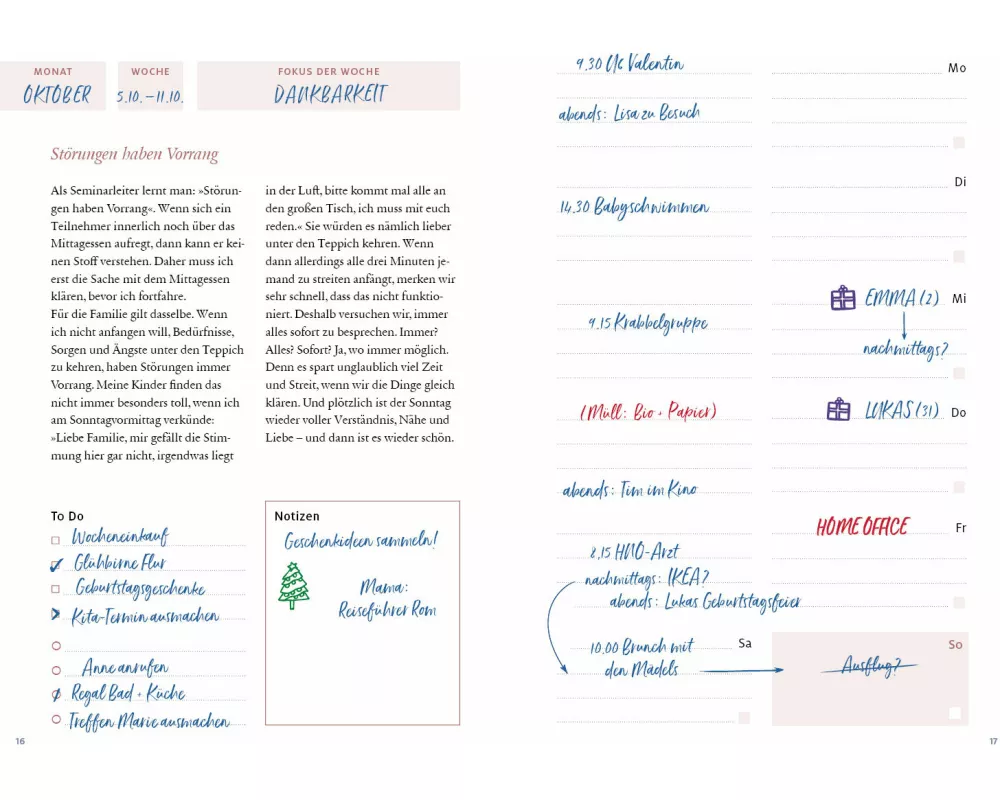 MONAT
WOCHE
FOKUS DER WOCHE
OKTOBER
5.10.–11.10.
DANKBARKEIT
Störungen haben Vorrang
Als Seminarleiter lernt man: »Störun-
gen haben Vorrang«. Wenn sich ein
Teilnehmer innerlich noch über das
Mittagessen aufregt, dann kann er kei-
nen Stoff verstehen. Daher muss ich
erst die Sache mit dem Mittagessen
klären, bevor ich fortfahre.
Für die Familie gilt dasselbe. Wenn
ich nicht anfangen will, Bedürfnisse,
Sorgen und Ängste unter den Teppich
zu kehren, haben Störungen immer
Vorrang. Meine Kinder finden das
nicht immer besonders toll, wenn ich
am Sonntagvormittag verkünde:
»Liebe Familie, mir gefällt die Stim-
mung hier gar nicht, irgendwas liegt
in der Luft, bitte kommt mal alle an
den großen Tisch, ich muss mit euch
reden.« Sie würden es nämlich lieber
unter den Teppich kehren. Wenn
dann allerdings alle drei Minuten je-
mand zu streiten anfängt, merken wir
sehr schnell, dass das nicht funktio-
niert. Deshalb versuchen wir, immer
alles sofort zu besprechen. Immer?
Alles? Sofort? Ja, wo immer möglich.
Denn es spart unglaublich viel Zeit
und Streit, wenn wir die Dinge gleich
klären. Und plötzlich ist der Sonntag
wieder voller Verständnis, Nähe und
Liebe – und dann ist es wieder schön.
To Do
Wocheneinkauf
Glühbirne Flur
Geburtstagsgeschenke
Kita-Termin ausmachen
Anne anrufen
Regal Bad + Küche
Treffen Marie ausmachen
Notizen
Geschenkideen sammeln!
Mama:
Reiseführer Rom
16
9.30 U6 Valentin
Mo
abends: Lisa zu Besuch
Di
14.30 Babyschwimmen
EMMA (2)
Mi
9.15 Krabbelgruppe
nachmittags?
(Müll: Bio + Papier)
LUKAS (31)
Do
abends: Tim im Kino
HOME OFFICE
Fr
8.15 HNO-Arzt
nachmittags: IKEA?
abends: Lukas Geburtstagsfeier
10.00 Brunch mit
Sa
den Mädels
So
Ausflug?
17